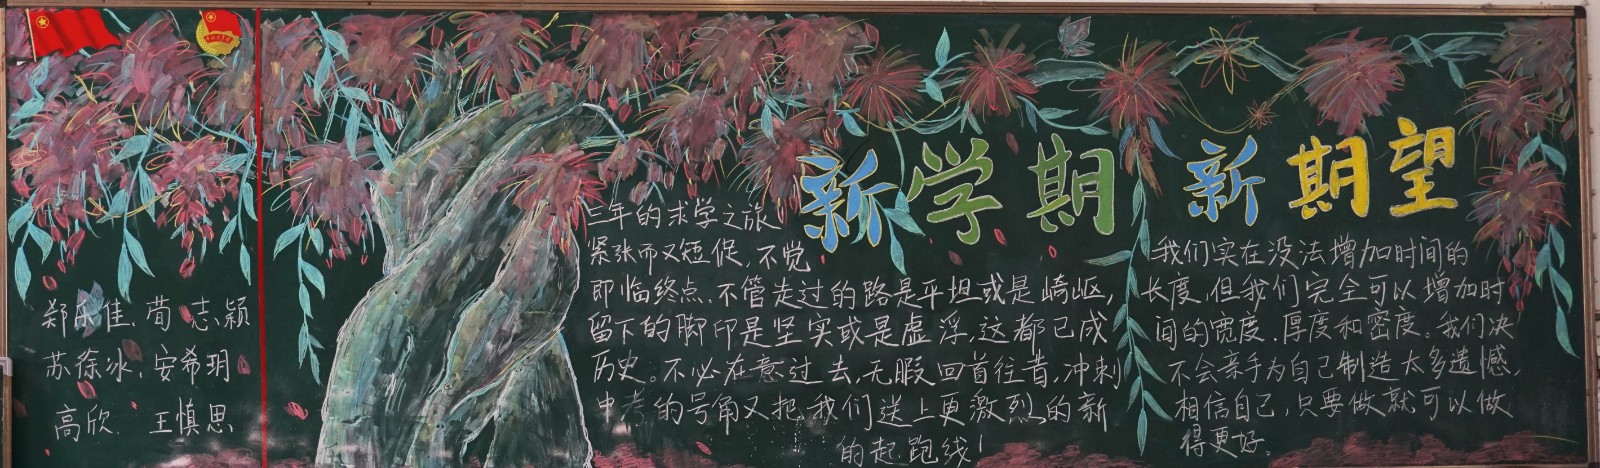 新学期 新期望
三年的求学之旅
紧张而又短促，不觉
即临终点、不管走过的路是平坦或是崎岖，
留下的脚印是坚实或是虚浮，这都已成
历史。不必在意过去，无暇回首往昔，冲刺
中考的号角又把我们送上更激烈的新
的起跑线！
我们实在没法增加时间的
长度，但我们完全可以增加时
间的宽度、厚度和密度。我们决
不会亲手为自己制造太多遗憾，
相信自己，只要做就可以做
得更好。
郑乐佳、荀志颖
苏徐冰、安希玥
高欣、王慎思